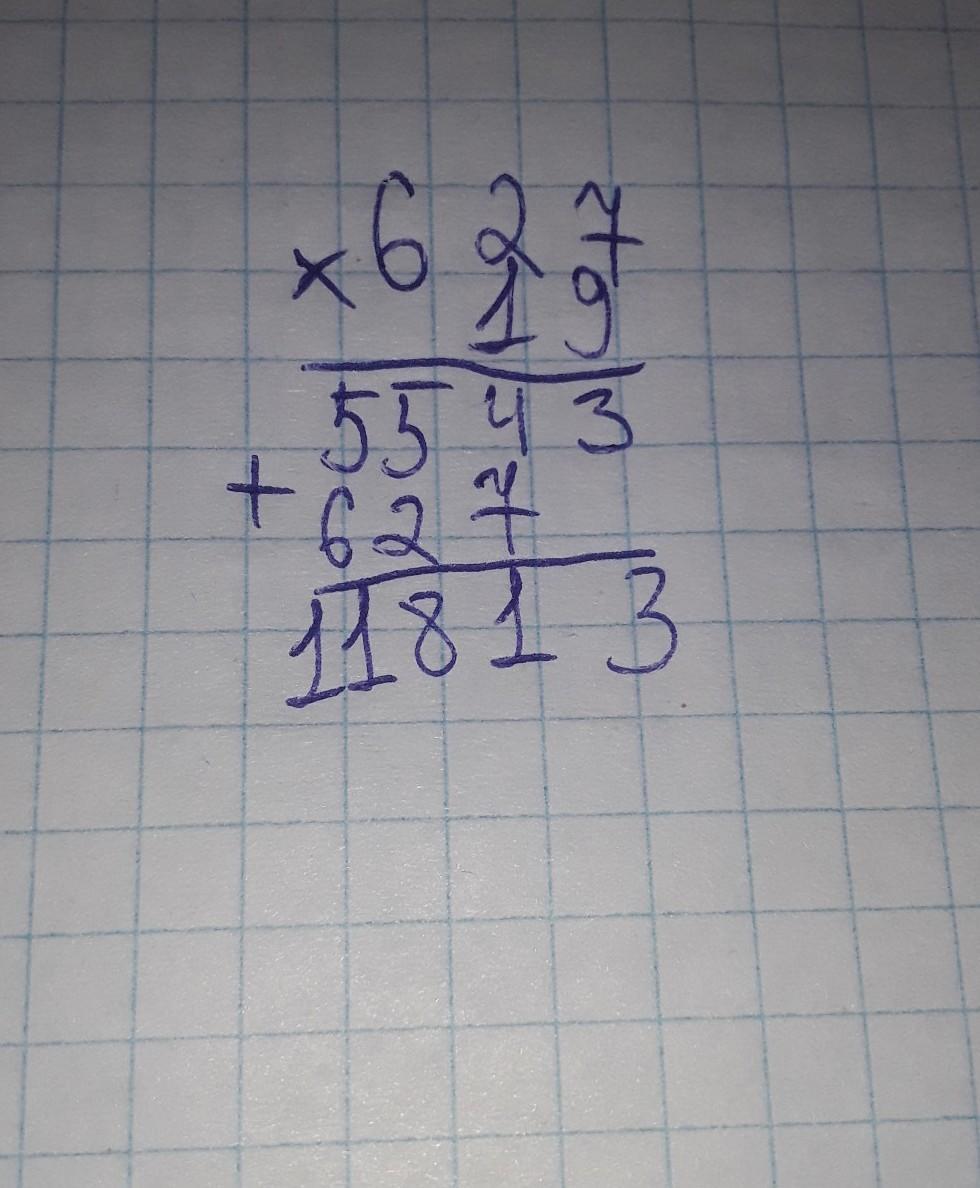 × 6 2 7
1 9
5 5 4 3
+
6 2 7
1 1 8 1 3